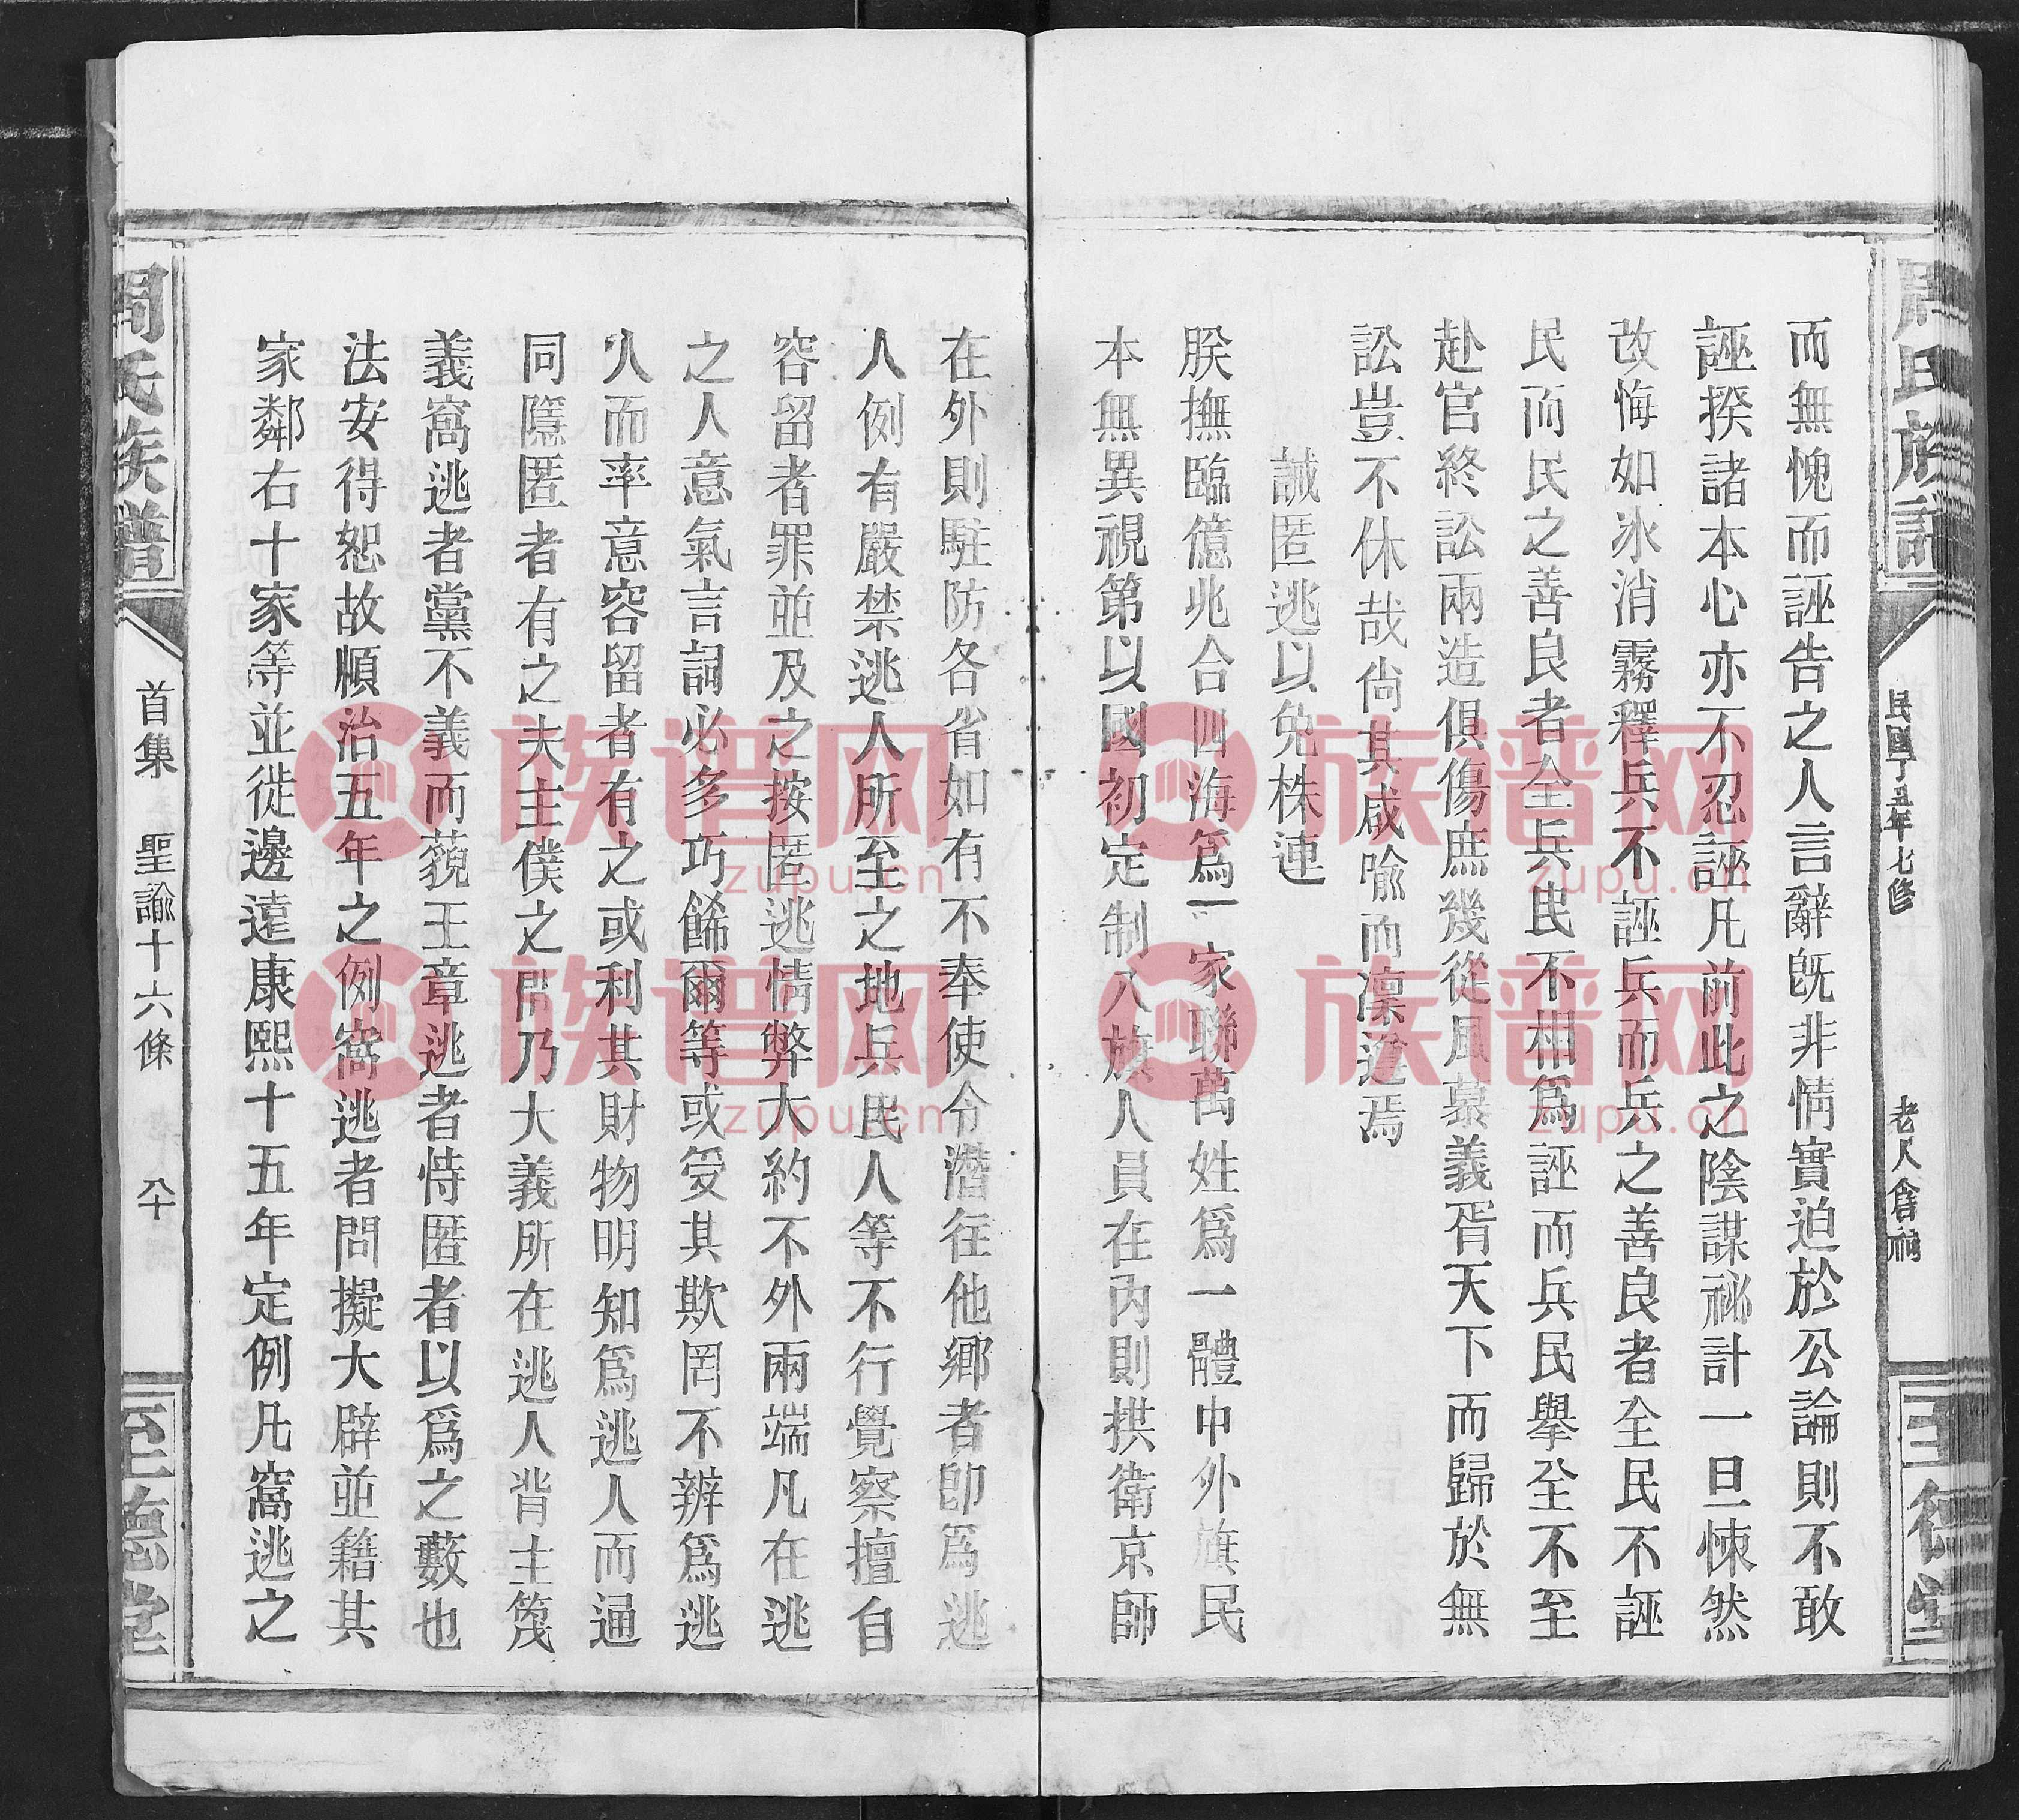 周氏族譜
民國丁丑年七修
老人倉祠
至德堂
而無愧而誣告之人言辭既非情實迫於公論則不敢
誣揆諸本心亦不忍誣凡前此之陰謀祕計一旦悚然
改悔如氷消霧釋兵不誣兵而兵之善良者全民不誣
民而民之善良者全兵民不相爲誣而兵民舉至不至
赴官終訟兩造俱傷庶幾從風慕義胥天下而歸於無
訟豈不休哉尙其咸喩而凜遵焉
誡匿逃以免株連
朕撫臨億兆合四海爲一家聯萬姓爲一體中外旗民
本無異視第以國初定制八旗人員在內則拱衛京師
在外則駐防各省如有不奉使令潛往他鄉者卽爲逃
人例有嚴禁逃人所至之地兵民人等不行覺察擅自
容留者罪並及之按匿逃情弊大約不外兩端凡在逃
之人意氣言詞必多巧餙爾等或受其欺罔不辨爲逃
人而率意容留者有之或利其財物明知爲逃人而通
同隱匿者有之夫主僕之閒乃大義所在逃人背主篾
義窩逃者黨不義而藐王章逃者恃匿者以爲之藪也
法安得恕故順治五年之例窩逃者問擬大辟並籍其
家鄰右十家等並徙邊遠康熙十五年定例凡窩逃之
周氏族譜
首集
聖諭十六條
八十
至德堂
族谱网
zupu.cn
族谱网
zupu.cn
族谱网
zupu.cn
族谱网
zupu.cn